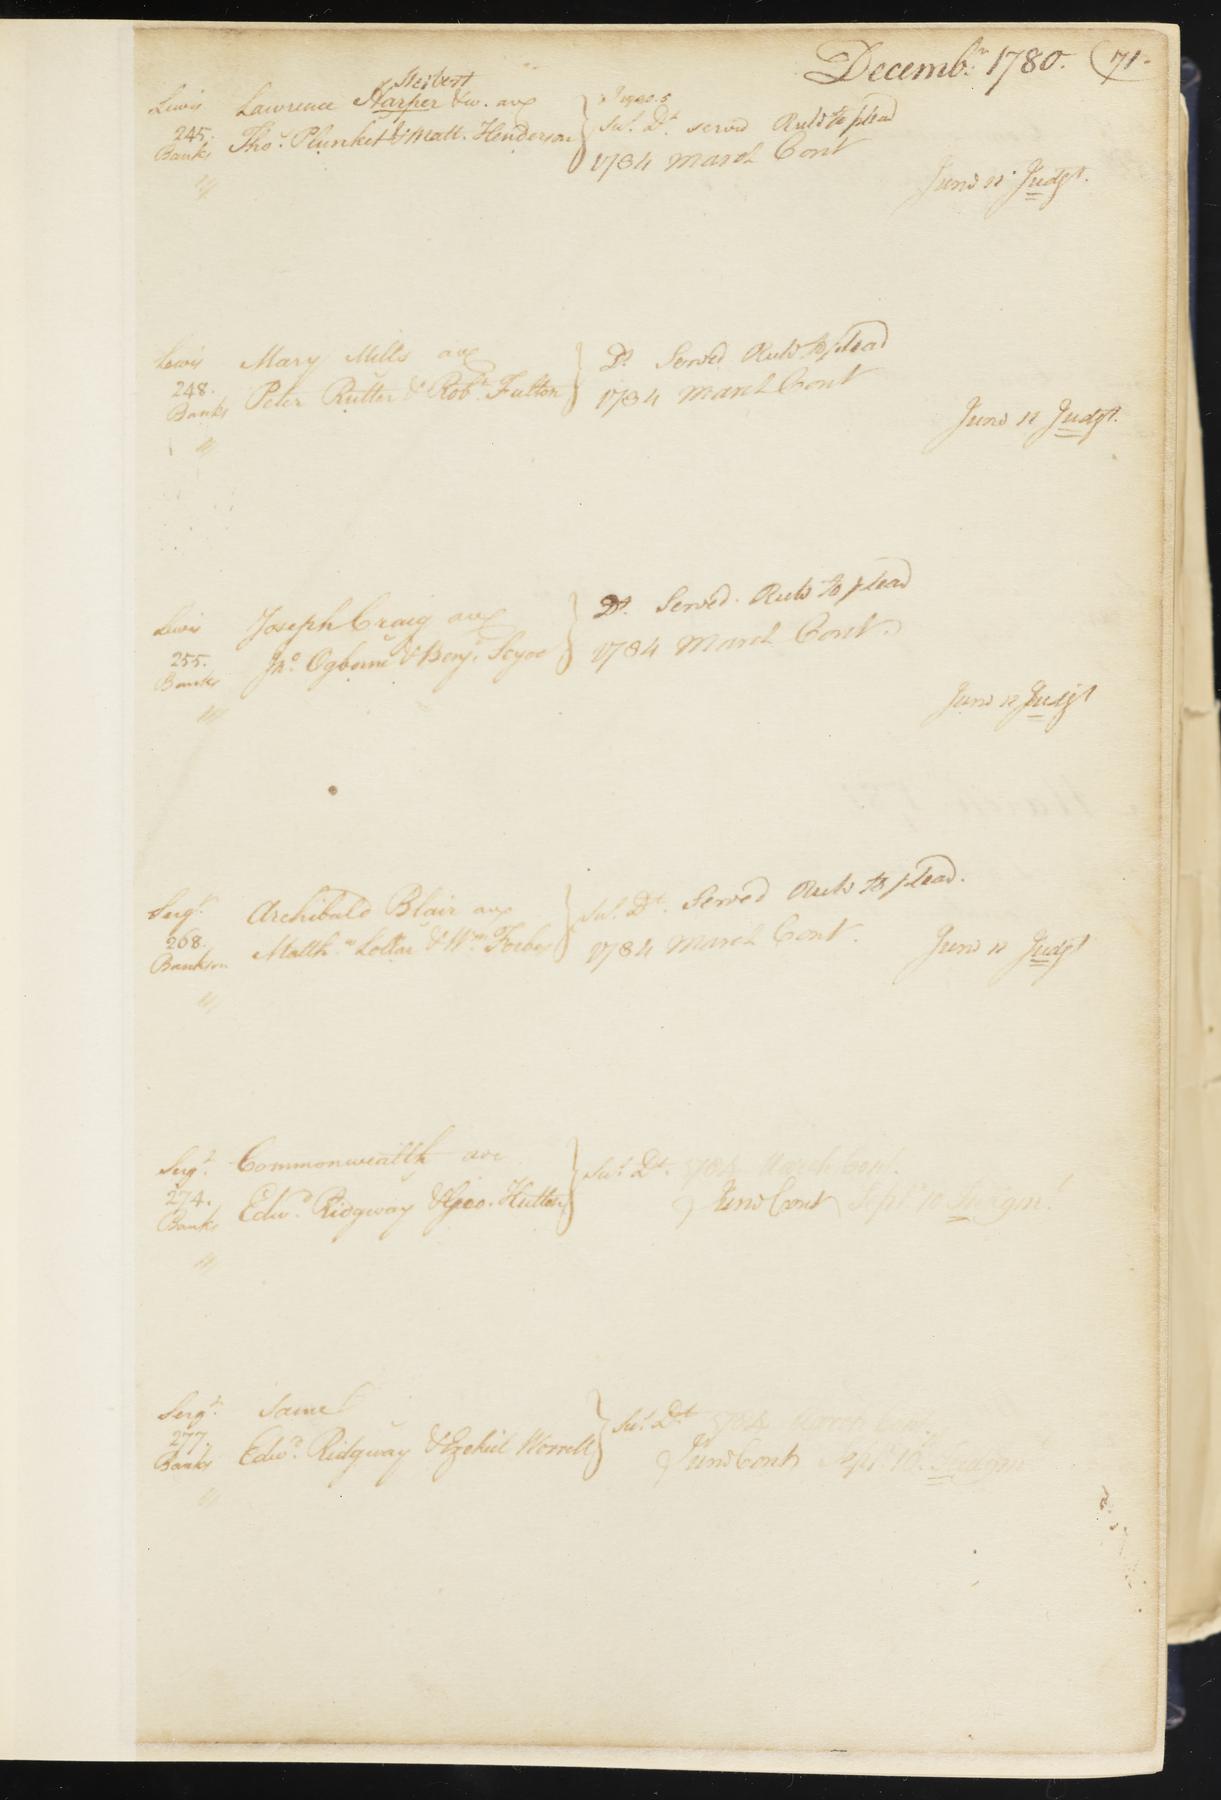 Decembr. 1780. (71.
Seibert
Lewis Lawrence Harper &w. avs
Sur. Dt. served Rule to plead
245. Thos. Plunket & Matt. Henderson
Banks 1784 March Cont
June 12 Judgt.
Lewis Mary Mills avs Dt. Served Rule to plead
248. Peter Rutter & Robt. Fulton 1784 March Cont
Banks
June 12 Judgt.
Lewis Joseph Craig avs Dt. Served. Rule to plead
255. Jno. Ogborne & Benj. Scyoc 1784 March Cont.
Banks
June 12 Judgt
Sergt. Archibald Blair avs Sur. Dt. Served Rule to plead.
268. Matthw. Lottar & Wm. Forbes 1784 March Cont. June 12 Judgt
Bankson
Sergt. Commonwealth avs Sur. Dt. 1784 March Cont.
274. Edwd. Ridgway & Geo. Hutton June Cont Sept. 10 Judgmt.
Banks
Sergt. Same Sur. Dt. 1784 March Cont.
277. Edwd. Ridgway & Ezekiel Worrell June Cont Sept. 10. Judgm
Banks